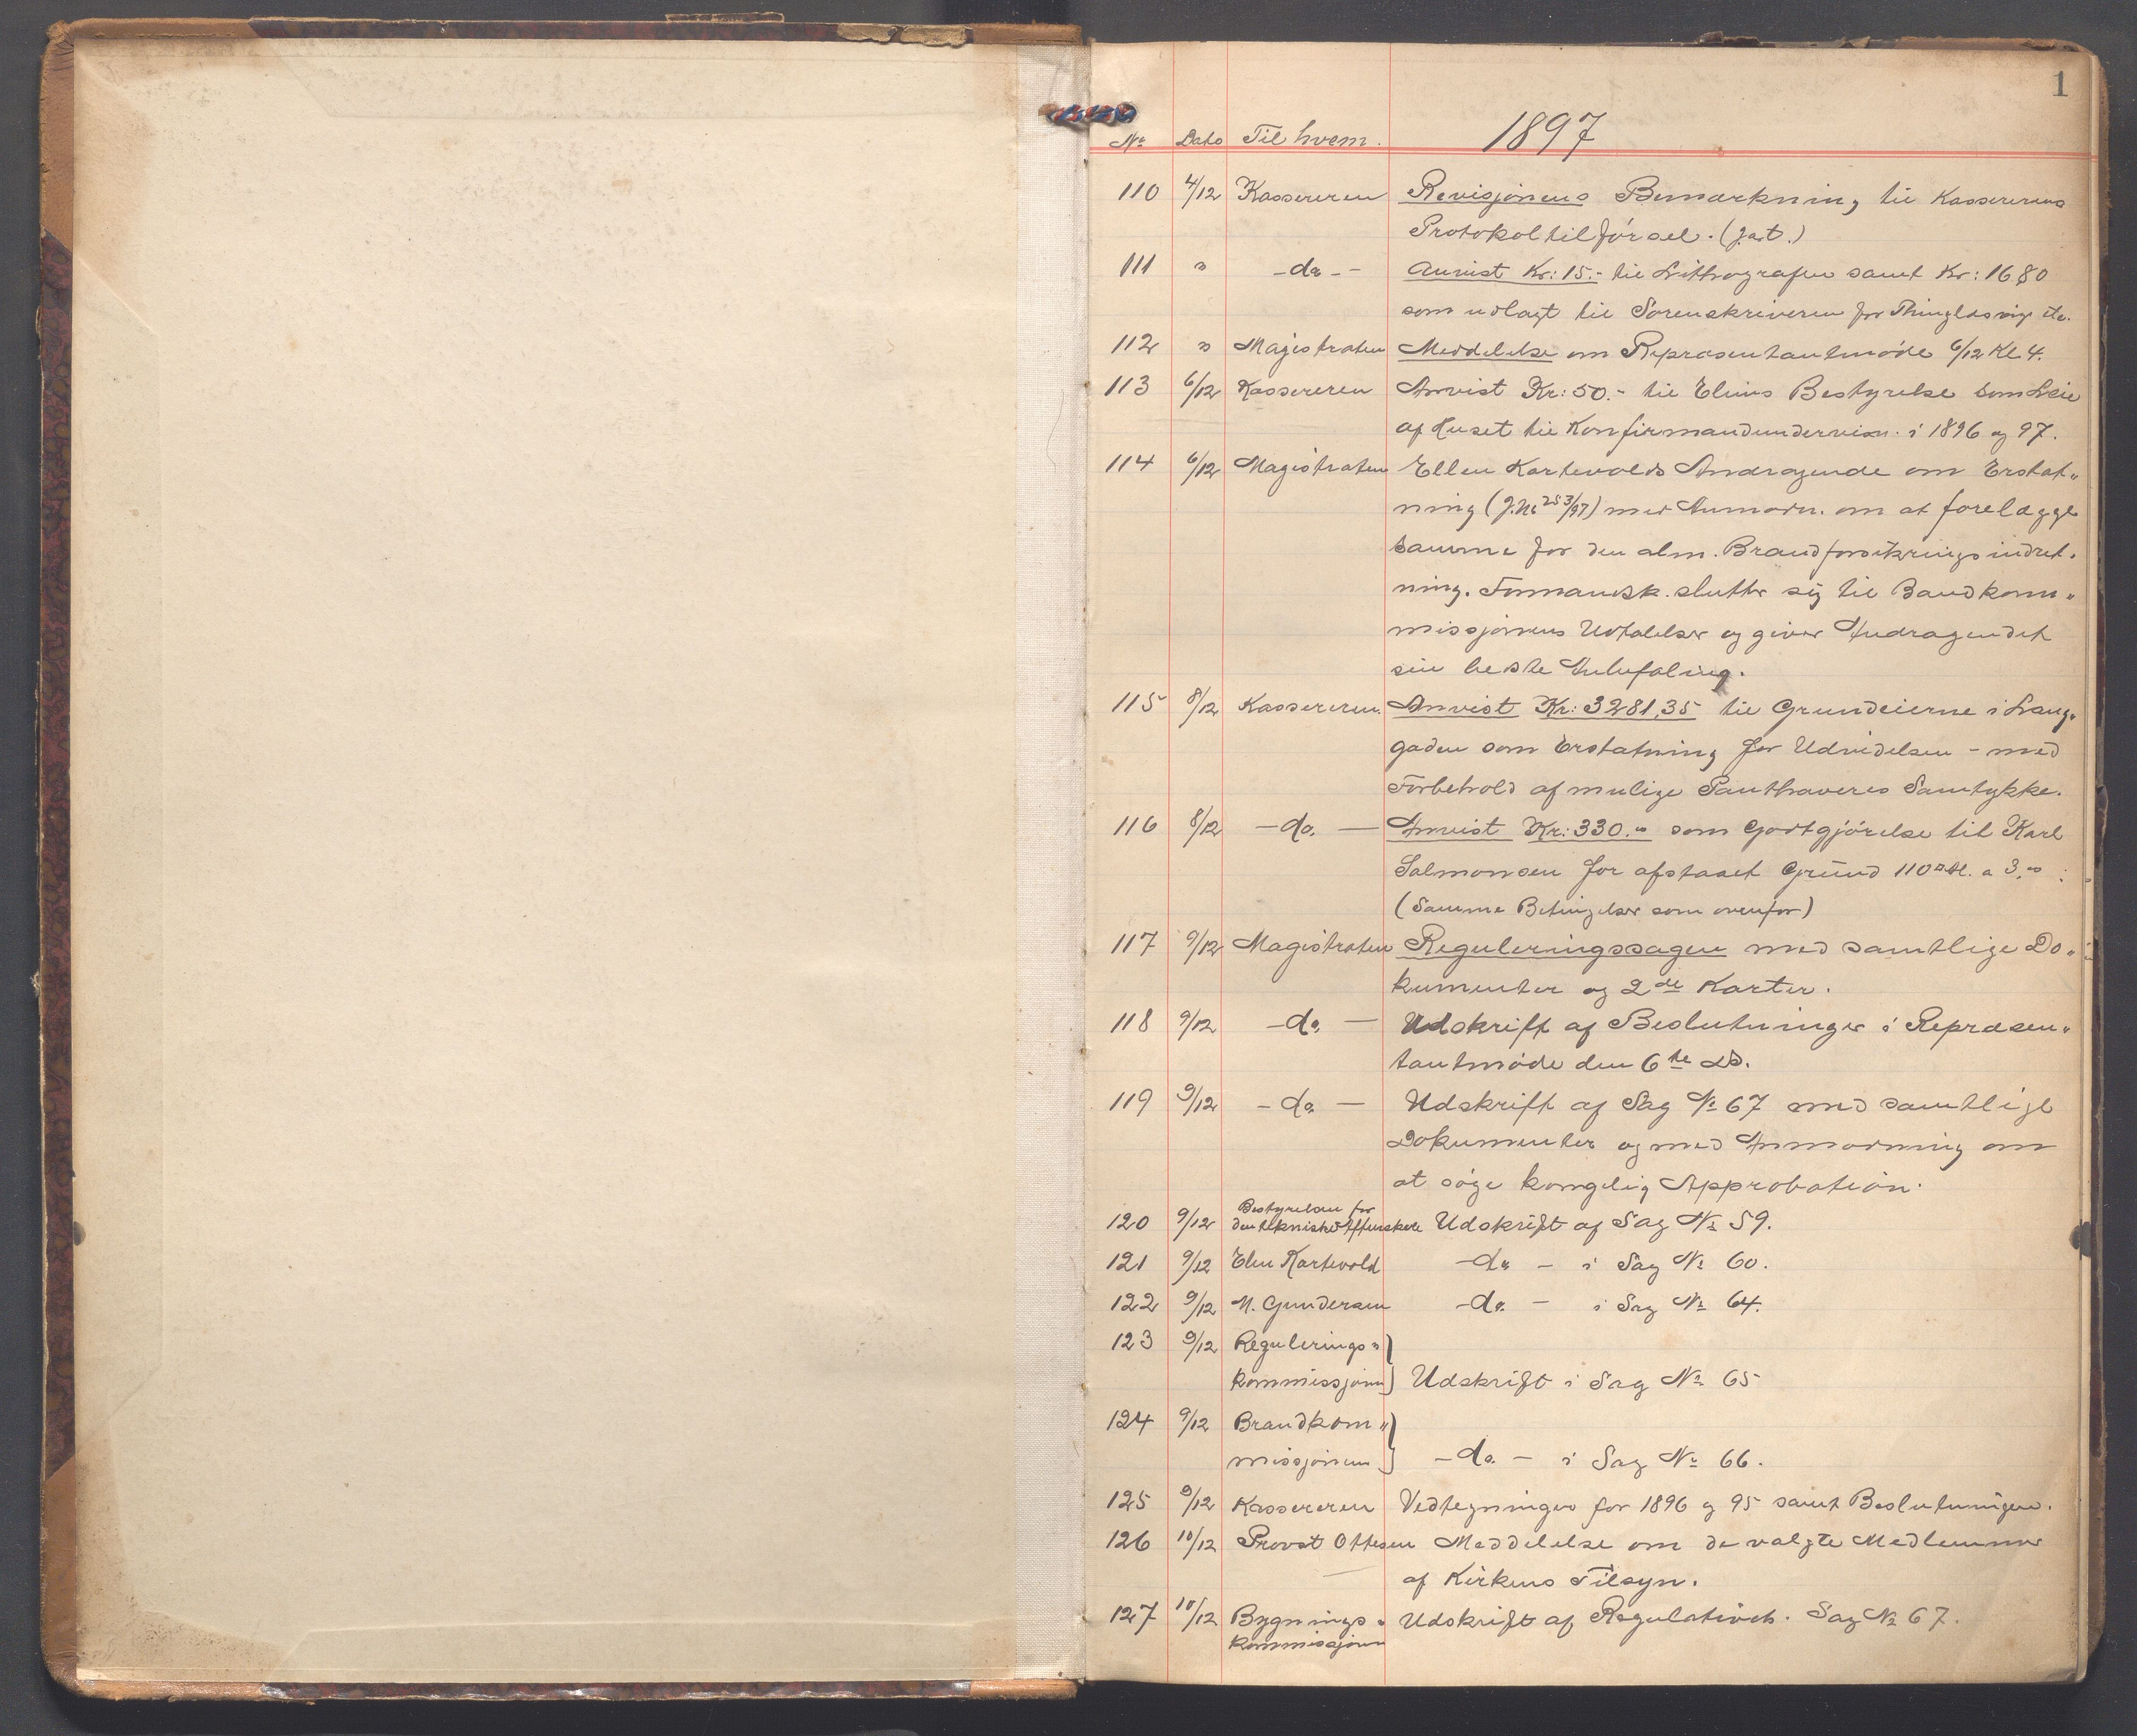 1
1897
No Dato Til hvem.
110 4/12 Kassereren Revisjonens Bemærkning til Kassererens
Protokoltilførsel. (J.art.)
111 " - do - Anvist Kr: 15.- til Lithografen samt Kr: 16,80
som udlagt til Sorenskriveren for Thinglæsning etc.
112 " Magistraten Meddelelse om Repræsentantmøde 6/12 Kl 4.
113 6/12 Kassereren Anvist Kr: 50.- til Elims Bestyrelse som Leie
af Huset til Konfirmandundervisn. i 1896 og 97.
114 6/12 Magistraten Ellen Kartevolds Andragende om Erstat„
ning (J.No 253/97) med Anmodn. om at forelægge
samme for den alm. Brandforsikringsindret„
ning. Formandsk. slutter sig til Bandkom„
missjonens Udtalelser og giver Andragendet
sin beste Anbefaling.
115 8/12 Kassereren. Anvist Kr: 3281,35 til Grundeierne i Lang„
gaden som Erstatning for Udvidelsen - med
Forbehold af mulige Panthaveres Samtykke.
116 8/12 - do. - Anvist Kr: 330.„ som Godtgjørelse til Karl
Salmonsen for afstaaet Grund 110 □ Al. a 3,00
(Samme Betingelser som ovenfor)
117 9/12 Magistraten Reguleringssagen med samtlige Do„
kumenter og 2de Karter.
118 9/12 - do. - Udskrift af Beslutninger i Repræsen„
tantmøde den 6te ds.
119 9/12 - do. - Udskrift af Sag No 67 med samtlige
Dokumenter og med Anmodning om
at søge kongelig Approbation.
Bestyrelsen for
120 9/12 den tekniske Aftenskole Udskrift af Sag No 59.
121 9/12 Elen Kartevold - do - i Sag No 60.
122 9/12 M. Gundersen - do. - i Sag No 64.
123 9/12 Regulerings„
kommissjonen Udskrift i Sag No 65
124 9/12 Brandkom„
missjonen - do. - i Sag No 66.
125 9/12 Kassereren Vedtegninger for 1896 og 95 samt Beslutningen.
126 10/12 Provst Ottesen Meddelelse om de valgte Medlemmer
af Kirkens Tilsyn.
127 10/12 Bygnings„ Udskrift af Regulativet. Sag No 67.
kommissjonen